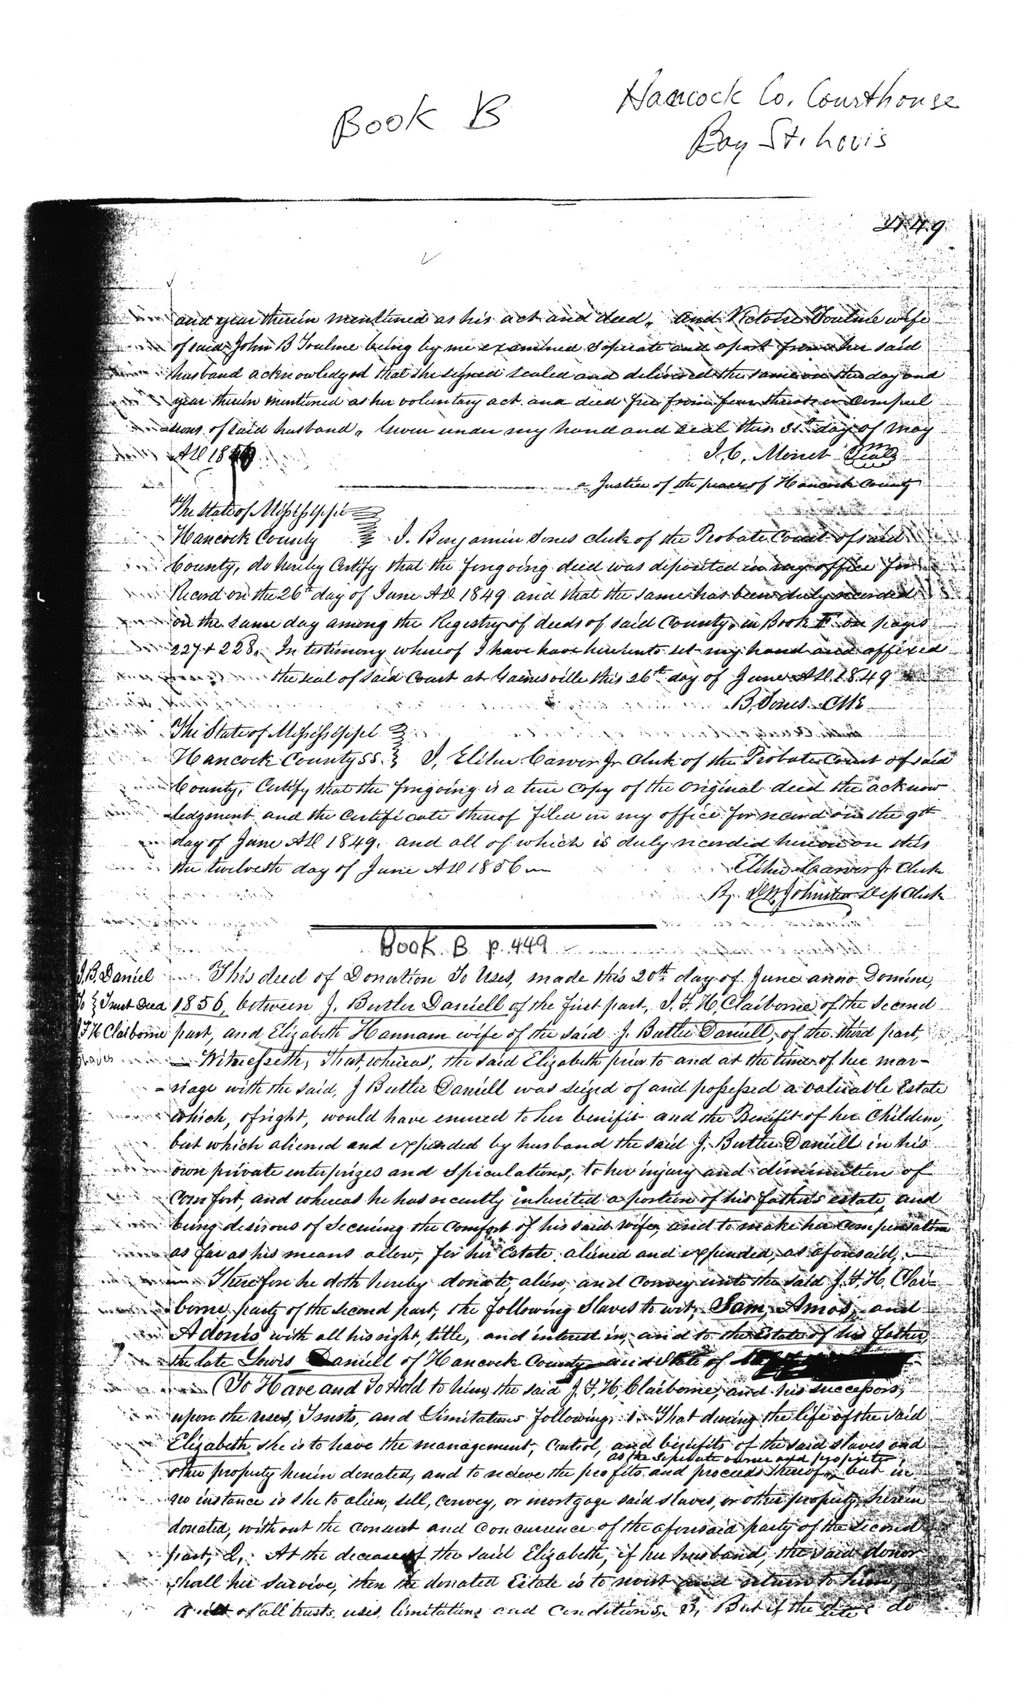 Book B
Hancock Co. Courthouse
Bay St. Louis
449
and year therein mentioned as his act and deed, and Victoire Toulme wife
of said John B Toulme being by me examined seperate and apart from her said
husband acknowledged that she signed sealed and delivered the same on the day and
year therein mentioned as her voluntary act and deed free from fear threats or compul
sions of said husband, Given under my hand and seal this 31st day of May
AD 18
J. C. Monet Seal
a Justice of the peace of Hancock County
The State of Mississippi
Hancock County I, Benjamin Jones clerk of the Probate Court of said
County, do hereby Certify that the forgoing deed was deposited in my office for
Record on the 26th day of June AD 1849 and that the same has been duly recorded
on the same day among the Registry of deeds of said County, in Book F on pages
227 & 228. In testimony whereof I have have hereunto set my hand and affixed
the seal of said Court at Gainesville this 26th day of June AD 1849
B. Jones Clk
The State of Mississippi
Hancock County SS. I, Elihu Carver Jr Clerk of the Probate Court of said
County, Certify that the forgoing is a true copy of the original deed the acknow
ledgment and the certificate thereof filed in my office for record on the 9th
day of June AD 1849. and all of which is duly recorded hereon on this
the twelveth day of June AD 1856
Elihu Carver Jr Clerk
By Johnston Dep Clerk
Book B p. 449
J. B. Daniel
To Trust Deed
J F H Claiborne
Slaves
This deed of Donation To Uses, made this 20th day of June anno Domine,
1856, between J. Butler Daniell of the first part, J. F. H. Claiborne, of the second
part, and Elizabeth Hannam wife of the said J. Butler Daniell, of the third part,
Witnesseth, That, whereas, the said Elizabeth prior to and at the time of her mar-
-riage with the said, J Butler Daniell was seized of and possessed a valuable Estate
which, of right, would have enured to her benefit and the Benefit of her Children,
but which aliened and expended by husband the said J. Butler Daniell in his
own private enterprizes and speculations, to her injury and diminution of
comfort, and whereas he has recently inherited a portion of his father's estate, and
being desirous of securing the comfort of his said wife, and to make her compensation
as far as his means allow, for her Estate aliened and expended, as aforesaid,
Therefore he doth hereby donate, alien, and convey unto the said J. F. H. Clai-
borne, party of the second part, the following Slaves to wit, Sam, Amos, and
Adonis with all his right, title, and interest in, and to the Estate of his father,
the late Lewis Daniell of Hancock County and State of
(To Have and To Hold to him, the said J. F. H. Claiborne, and his successors,
upon the uses, Trusts, and Limitations following, 1. That during the life of the said
Elizabeth, she is to have the management, control, and benefits of the said slaves and
as the seperate owner and property
other property herein donated, and to recieve the profits, and proceeds thereof, but in
no instance is she to alien, sell, convey, or mortgage said slaves, or other property, herein
donated, without the consent and concurence of the aforesaid party of the second
part, 2,. At the decease of the said Elizabeth, if her husband, the said donor
shall her survive, then the donated Estate is to revert and return to him,
of all trusts, uses, limitations and conditions. 3, But if the do